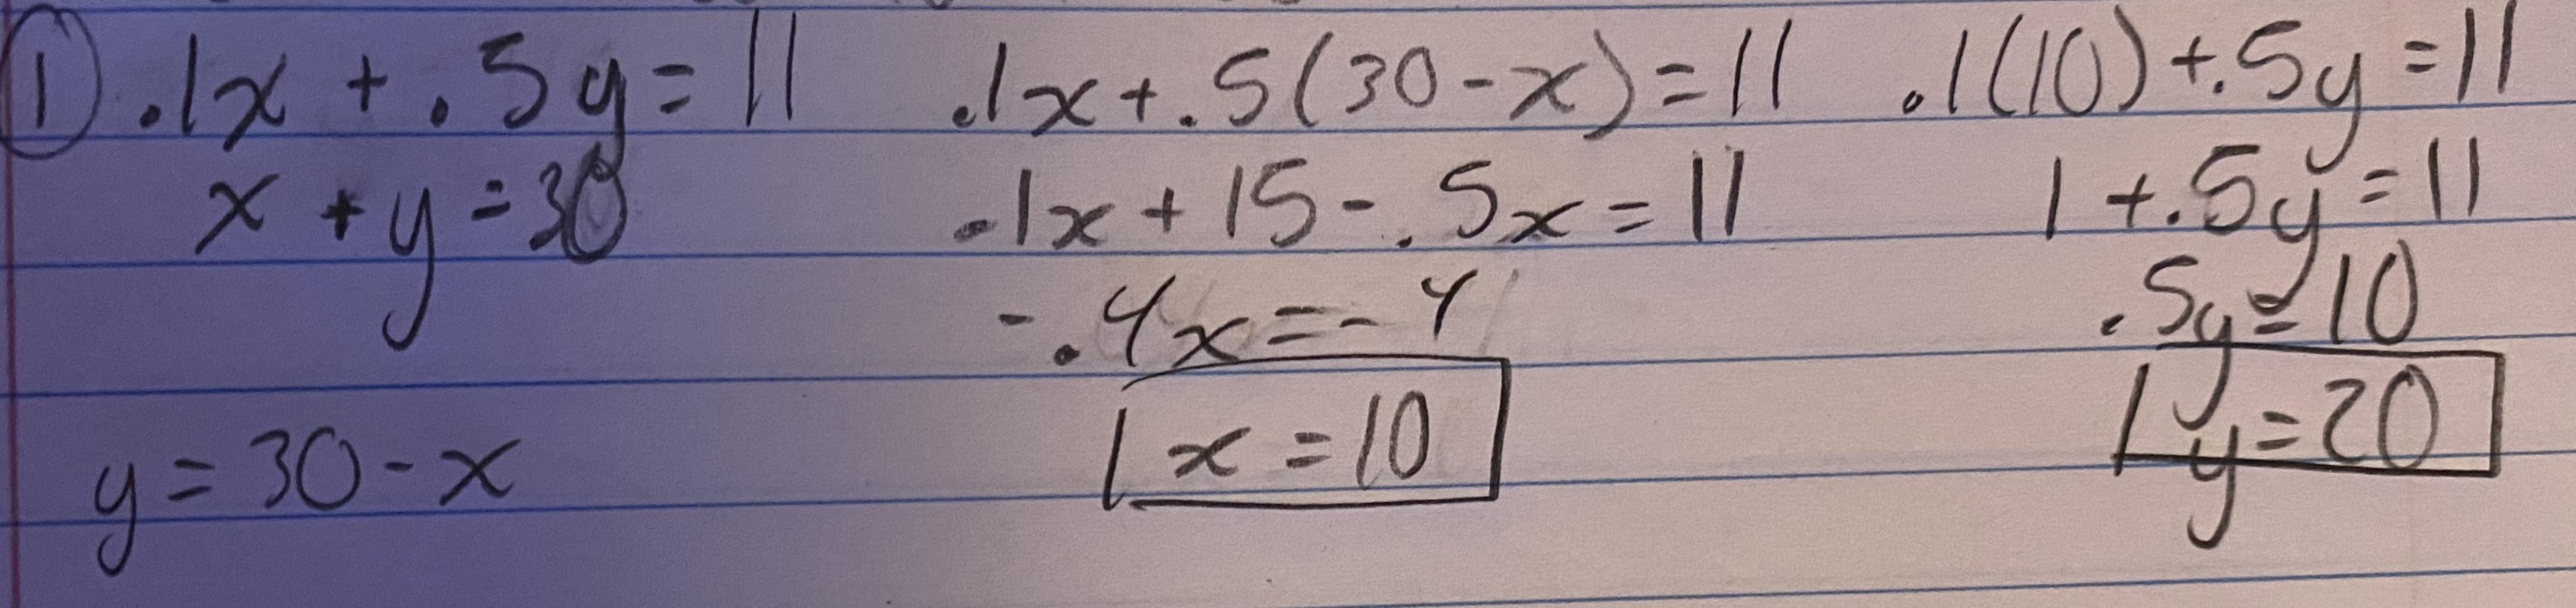 ① .1x + .5y = 11
x + y = 30
y = 30 - x
.1x + .5(30 - x) = 11
.1x + 15 - .5x = 11
-.4x = -4
x = 10
.1(10) + .5y = 11
1 + .5y = 11
.5y = 10
y = 20